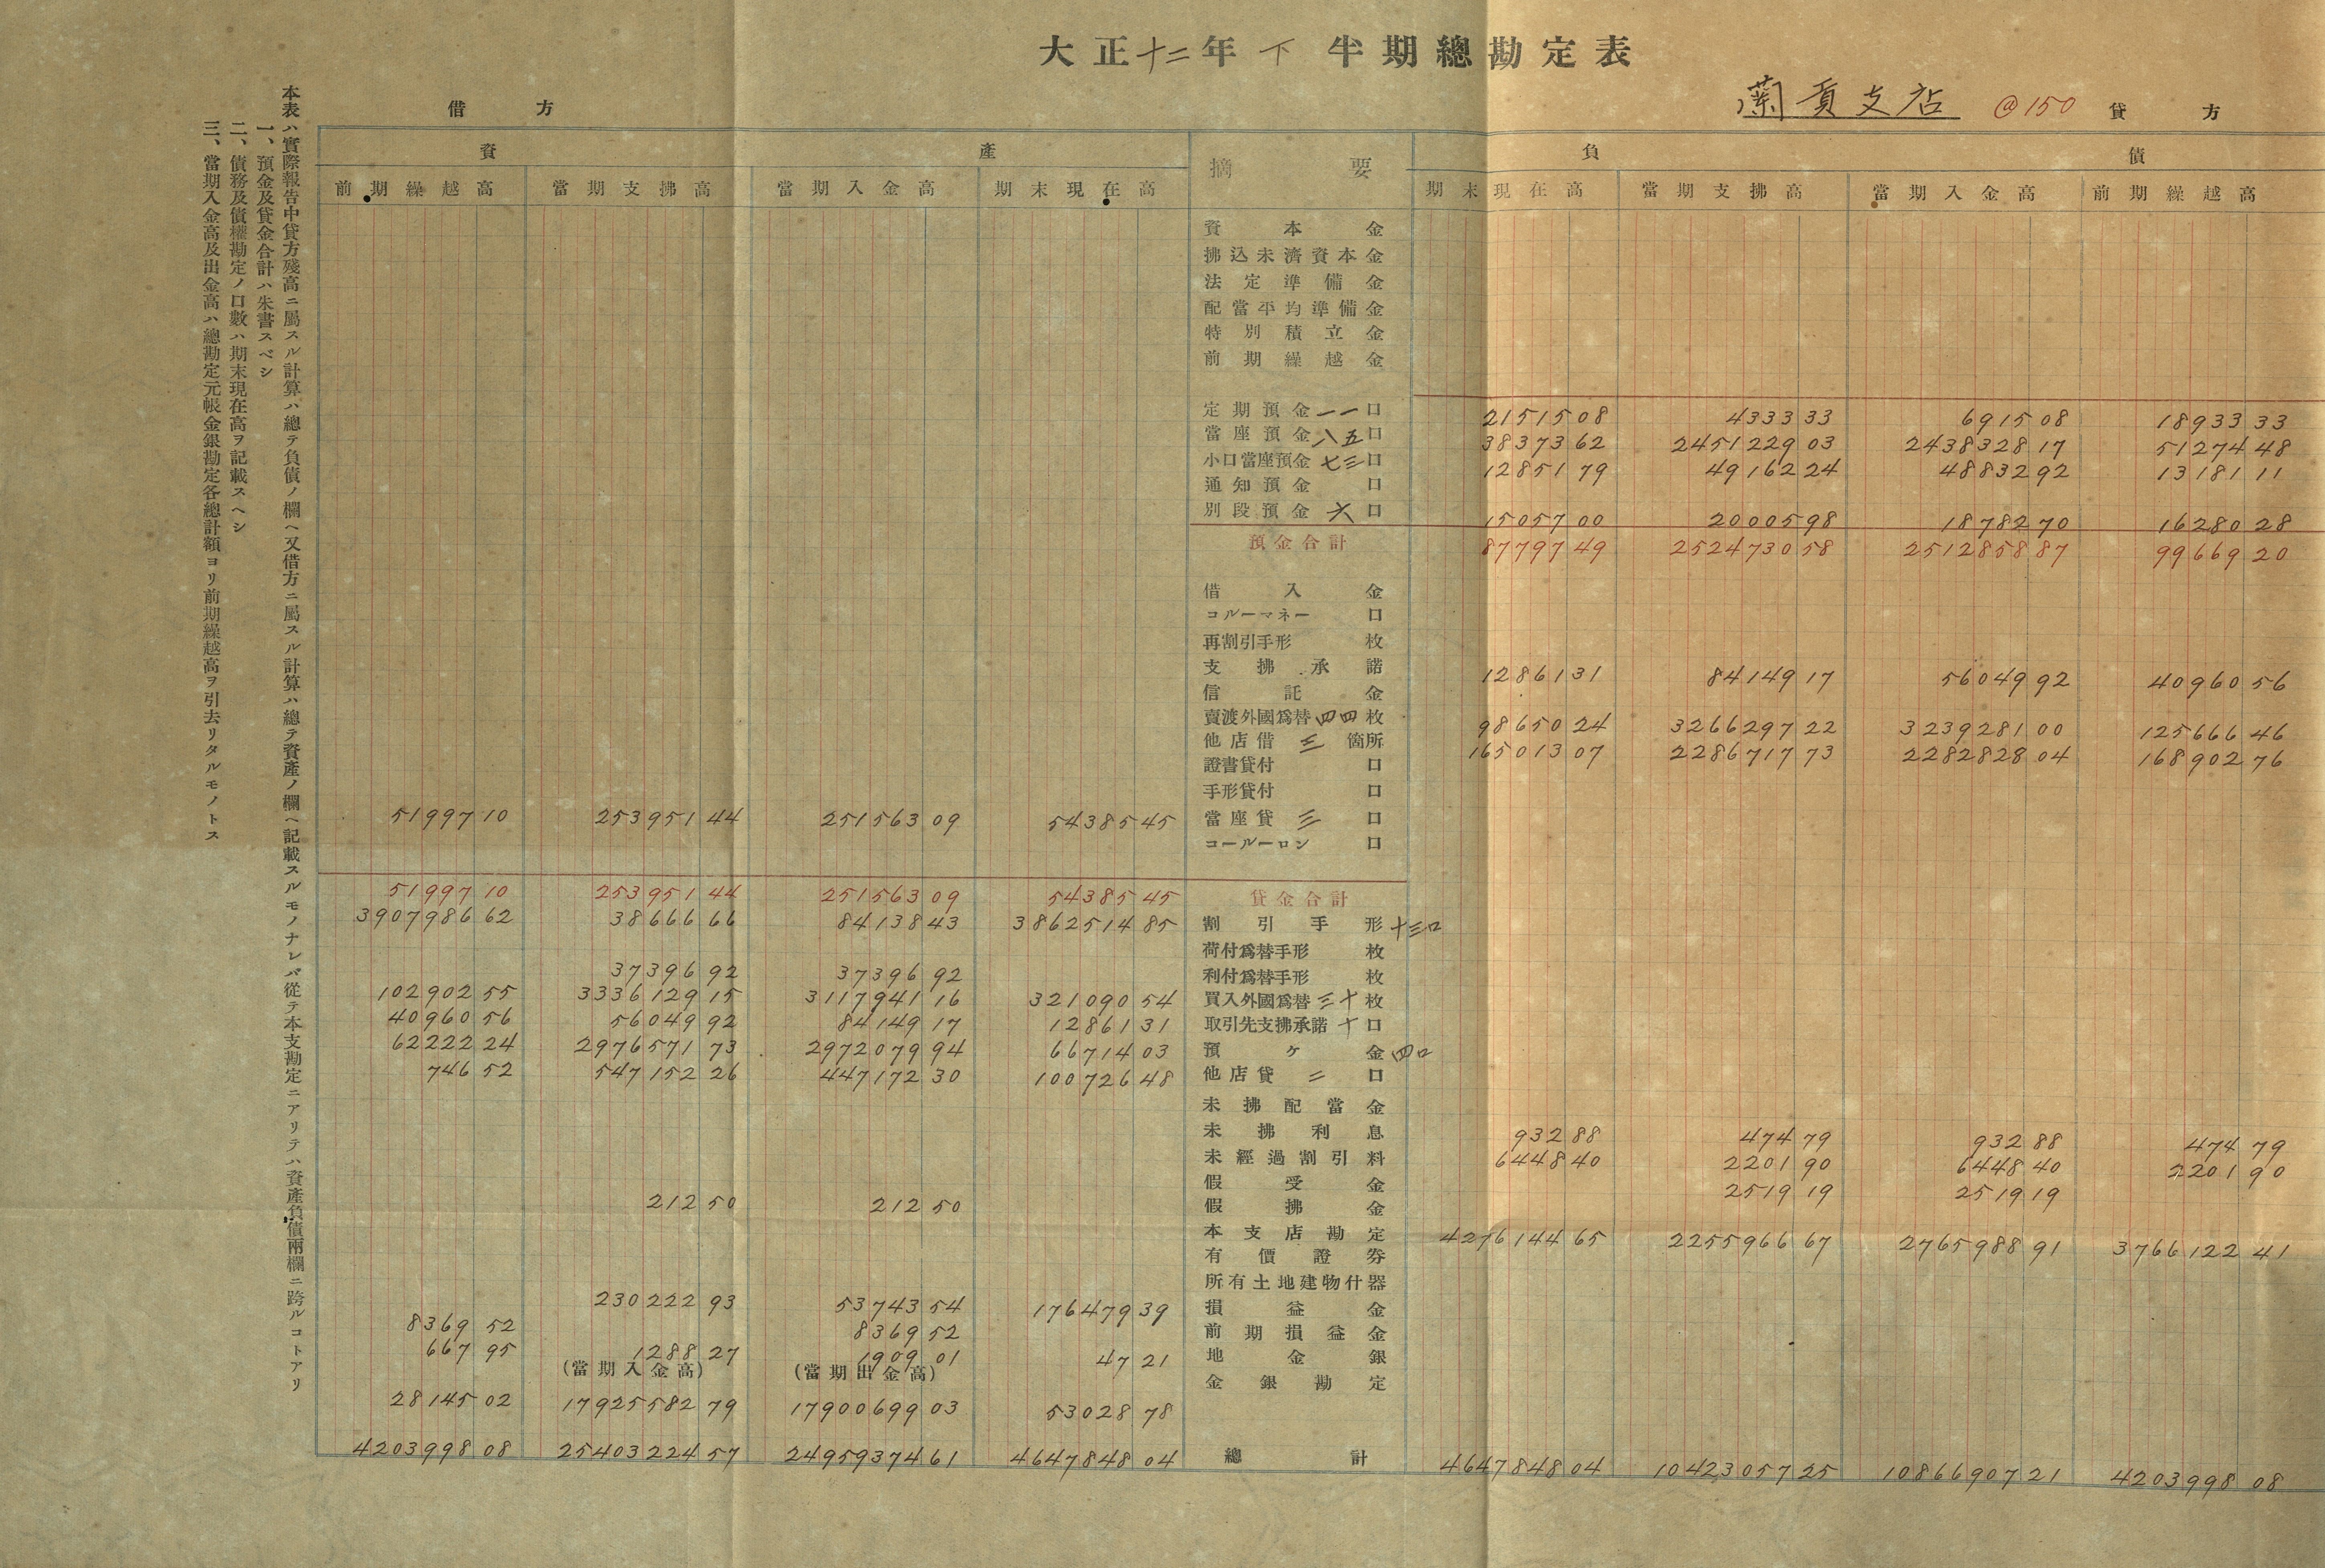 大正十二年下半期總勘定表
蘭貢支店 @150
借方 貸方
資產 摘要 負債
前期繰越高 當期支拂高 當期入金高 期末現在高 期末現在高 當期支拂高 當期入金高 前期繰越高
資本金
拂込未濟資本金
法定準備金
配當平均準備金
特別積立金
前期繰越金
定期預金一一口 21515 08 4333 33 6915 08 18933 33
當座預金八五口 38373 62 2451229 03 2438328 17 51274 48
小口當座預金七三口 12851 79 49162 24 48832 92 13181 11
通知預金 口
別段預金六口 15057 00 20005 98 18782 70 16280 28
預金合計 87797 49 2524730 58 2512858 87 99669 20
借入金
コルーマネー 口
再割引手形 枚
支拂承諾 12861 31 84149 17 56049 92 40960 56
信託金
賣渡外國爲替四四枚 98650 24 3266297 22 3239281 00 125666 46
他店借三箇所 165013 07 2286717 73 2282828 04 168902 76
證書貸付 口
手形貸付 口
51997 10 253951 44 251563 09 54385 45 當座貸三口
コールーロン 口
51997 10 253951 44 251563 09 54385 45 貸金合計
3907986 62 38666 66 84138 43 3862514 85 割引手形十三口
荷付爲替手形 枚
37396 92 37396 92 利付爲替手形 枚
102902 55 3336129 15 3117941 16 321090 54 買入外國爲替三十枚
40960 56 56049 92 84149 17 12861 31 取引先支拂承諾十口
62222 24 2976571 73 2972079 94 66714 03 預ケ金四口
746 52 547152 26 447172 30 100726 48 他店貸二口
未拂配當金
未拂利息 932 88 474 79 932 88 474 79
未經過割引料 6448 40 2201 90 6448 40 2201 90
假受金 2519 19 2519 19
212 50 212 50 假拂金
本支店勘定 4276144 65 2255966 67 2765988 91 3766122 41
有價證券
所有土地建物什器
230222 93 53743 54 176479 39 損益金
8369 52 8369 52 前期損益金
667 95 1288 27 1909 01 47 21 地金銀
(當期入金高) (當期出金高) 金銀勘定
28145 02 17925582 79 17900699 03 53028 78
4203998 08 25403224 57 24959374 61 4647848 04 總計 4647848 04 10423057 25 10866907 21 4203998 08
本表ハ實際報告中貸方殘高ニ屬スル計算ハ總テ負債ノ欄ヘ又借方ニ屬スル計算ハ總テ資產ノ欄ヘ記載スルモノナレバ從テ本支勘定ニアリテハ資產負債兩欄ニ跨ルコトアリ
一、預金及貸金合計ハ朱書スベシ
二、債務及債權勘定ノ口數ハ期末現在高ヲ記載スヘシ
三、當期入金高及出金高ハ總勘定元帳金銀勘定各總計額ヨリ前期繰越高ヲ引去リタルモノトス